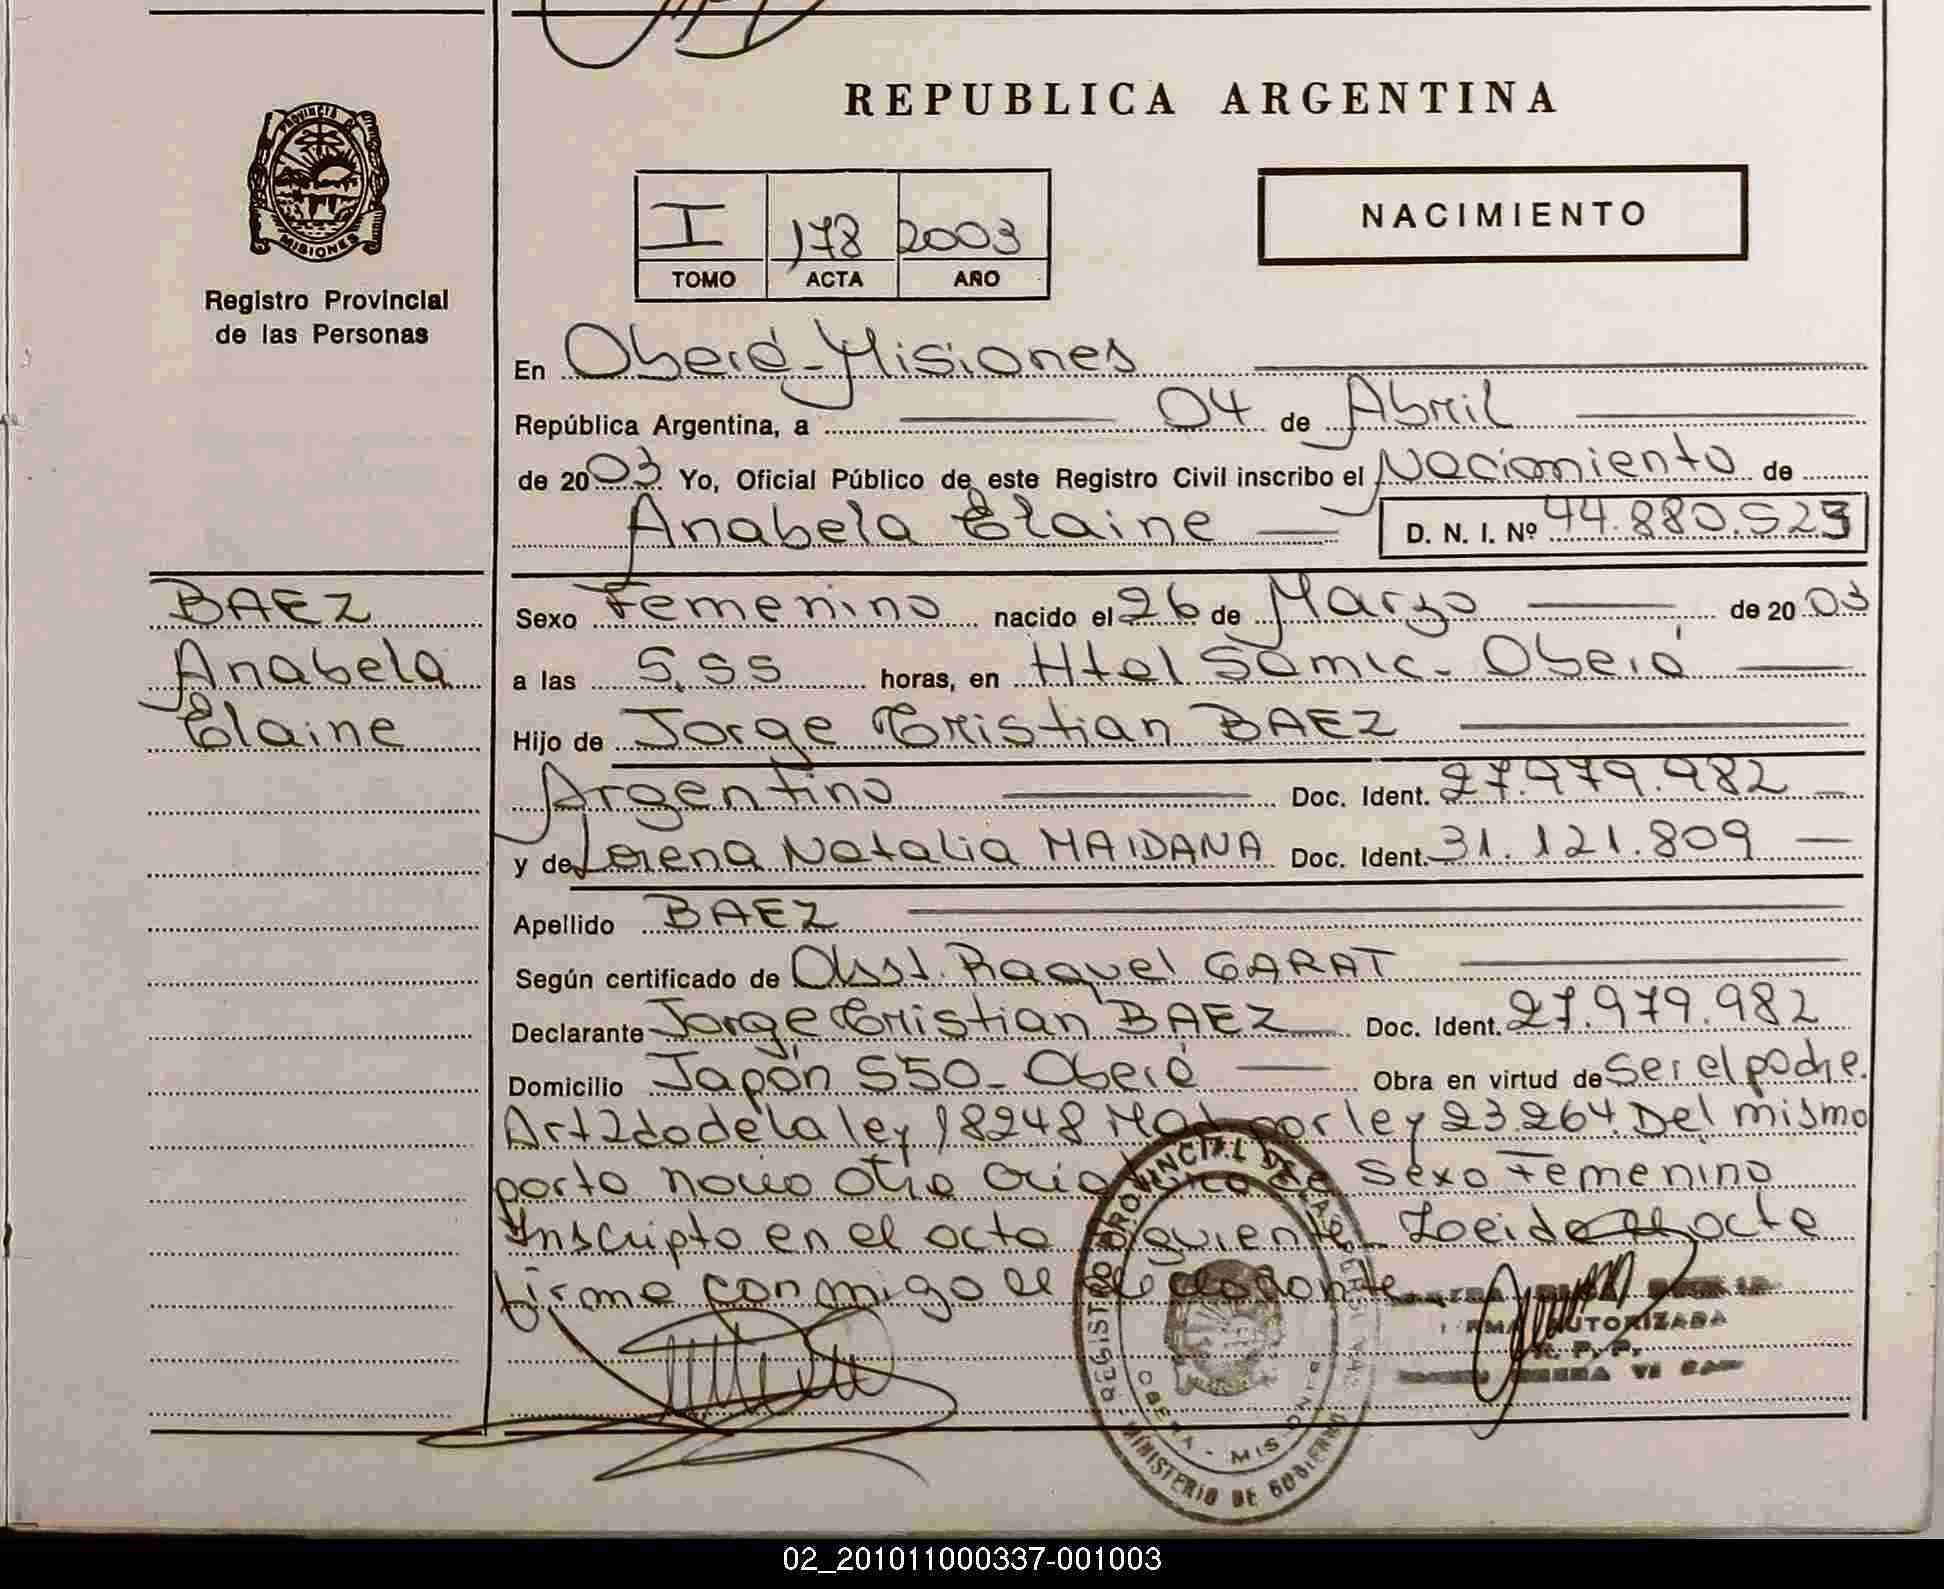 REPUBLICA ARGENTINA
PROVINCIA DE MISIONES
Registro Provincial
de las Personas
I 178 2003
TOMO ACTA AÑO
NACIMIENTO
En Oberá-Misiones
República Argentina, a 04 de Abril
de 2003 Yo, Oficial Público de este Registro Civil inscribo el Nacimiento de
Anabela Elaine D. N. I. Nº 44.880.523
BAEZ
Anabela
Elaine
Sexo Femenino nacido el 26 de Marzo de 2003
a las 5,55 horas, en Htal Samic - Oberá
Hijo de Jorge Cristian BAEZ
Argentino Doc. Ident. 27.979.982
y de Lorena Natalia MAIDANA Doc. Ident. 31.121.809
Apellido BAEZ
Según certificado de Obst. Raquel GARAT
Declarante Jorge Cristian BAEZ Doc. Ident. 27.979.982
Domicilio Japón 550 - Oberá Obra en virtud de Ser el padre.
Art 2do de la ley 18248 Mod por ley 23264. Del mismo
parto nacio otra criatura de Sexo Femenino
Inscripto en el acta siguiente. Leida el acta
firma conmigo el declarante
FIRMA AUTORIZADA
R. P. P.
REGISTRO PROVINCIAL DE LAS PERSONAS
OBERA - MISIONES
MINISTERIO DE GOBIERNO
02_201011000337-001003